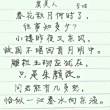 虞美人
春花秋月何时了，
往事知多少？
小楼昨夜又东风，
故国不堪回首月明中。
雕栏玉砌应犹在，
只是朱颜改。
问君能有几多愁，
恰似一江春水向东流。